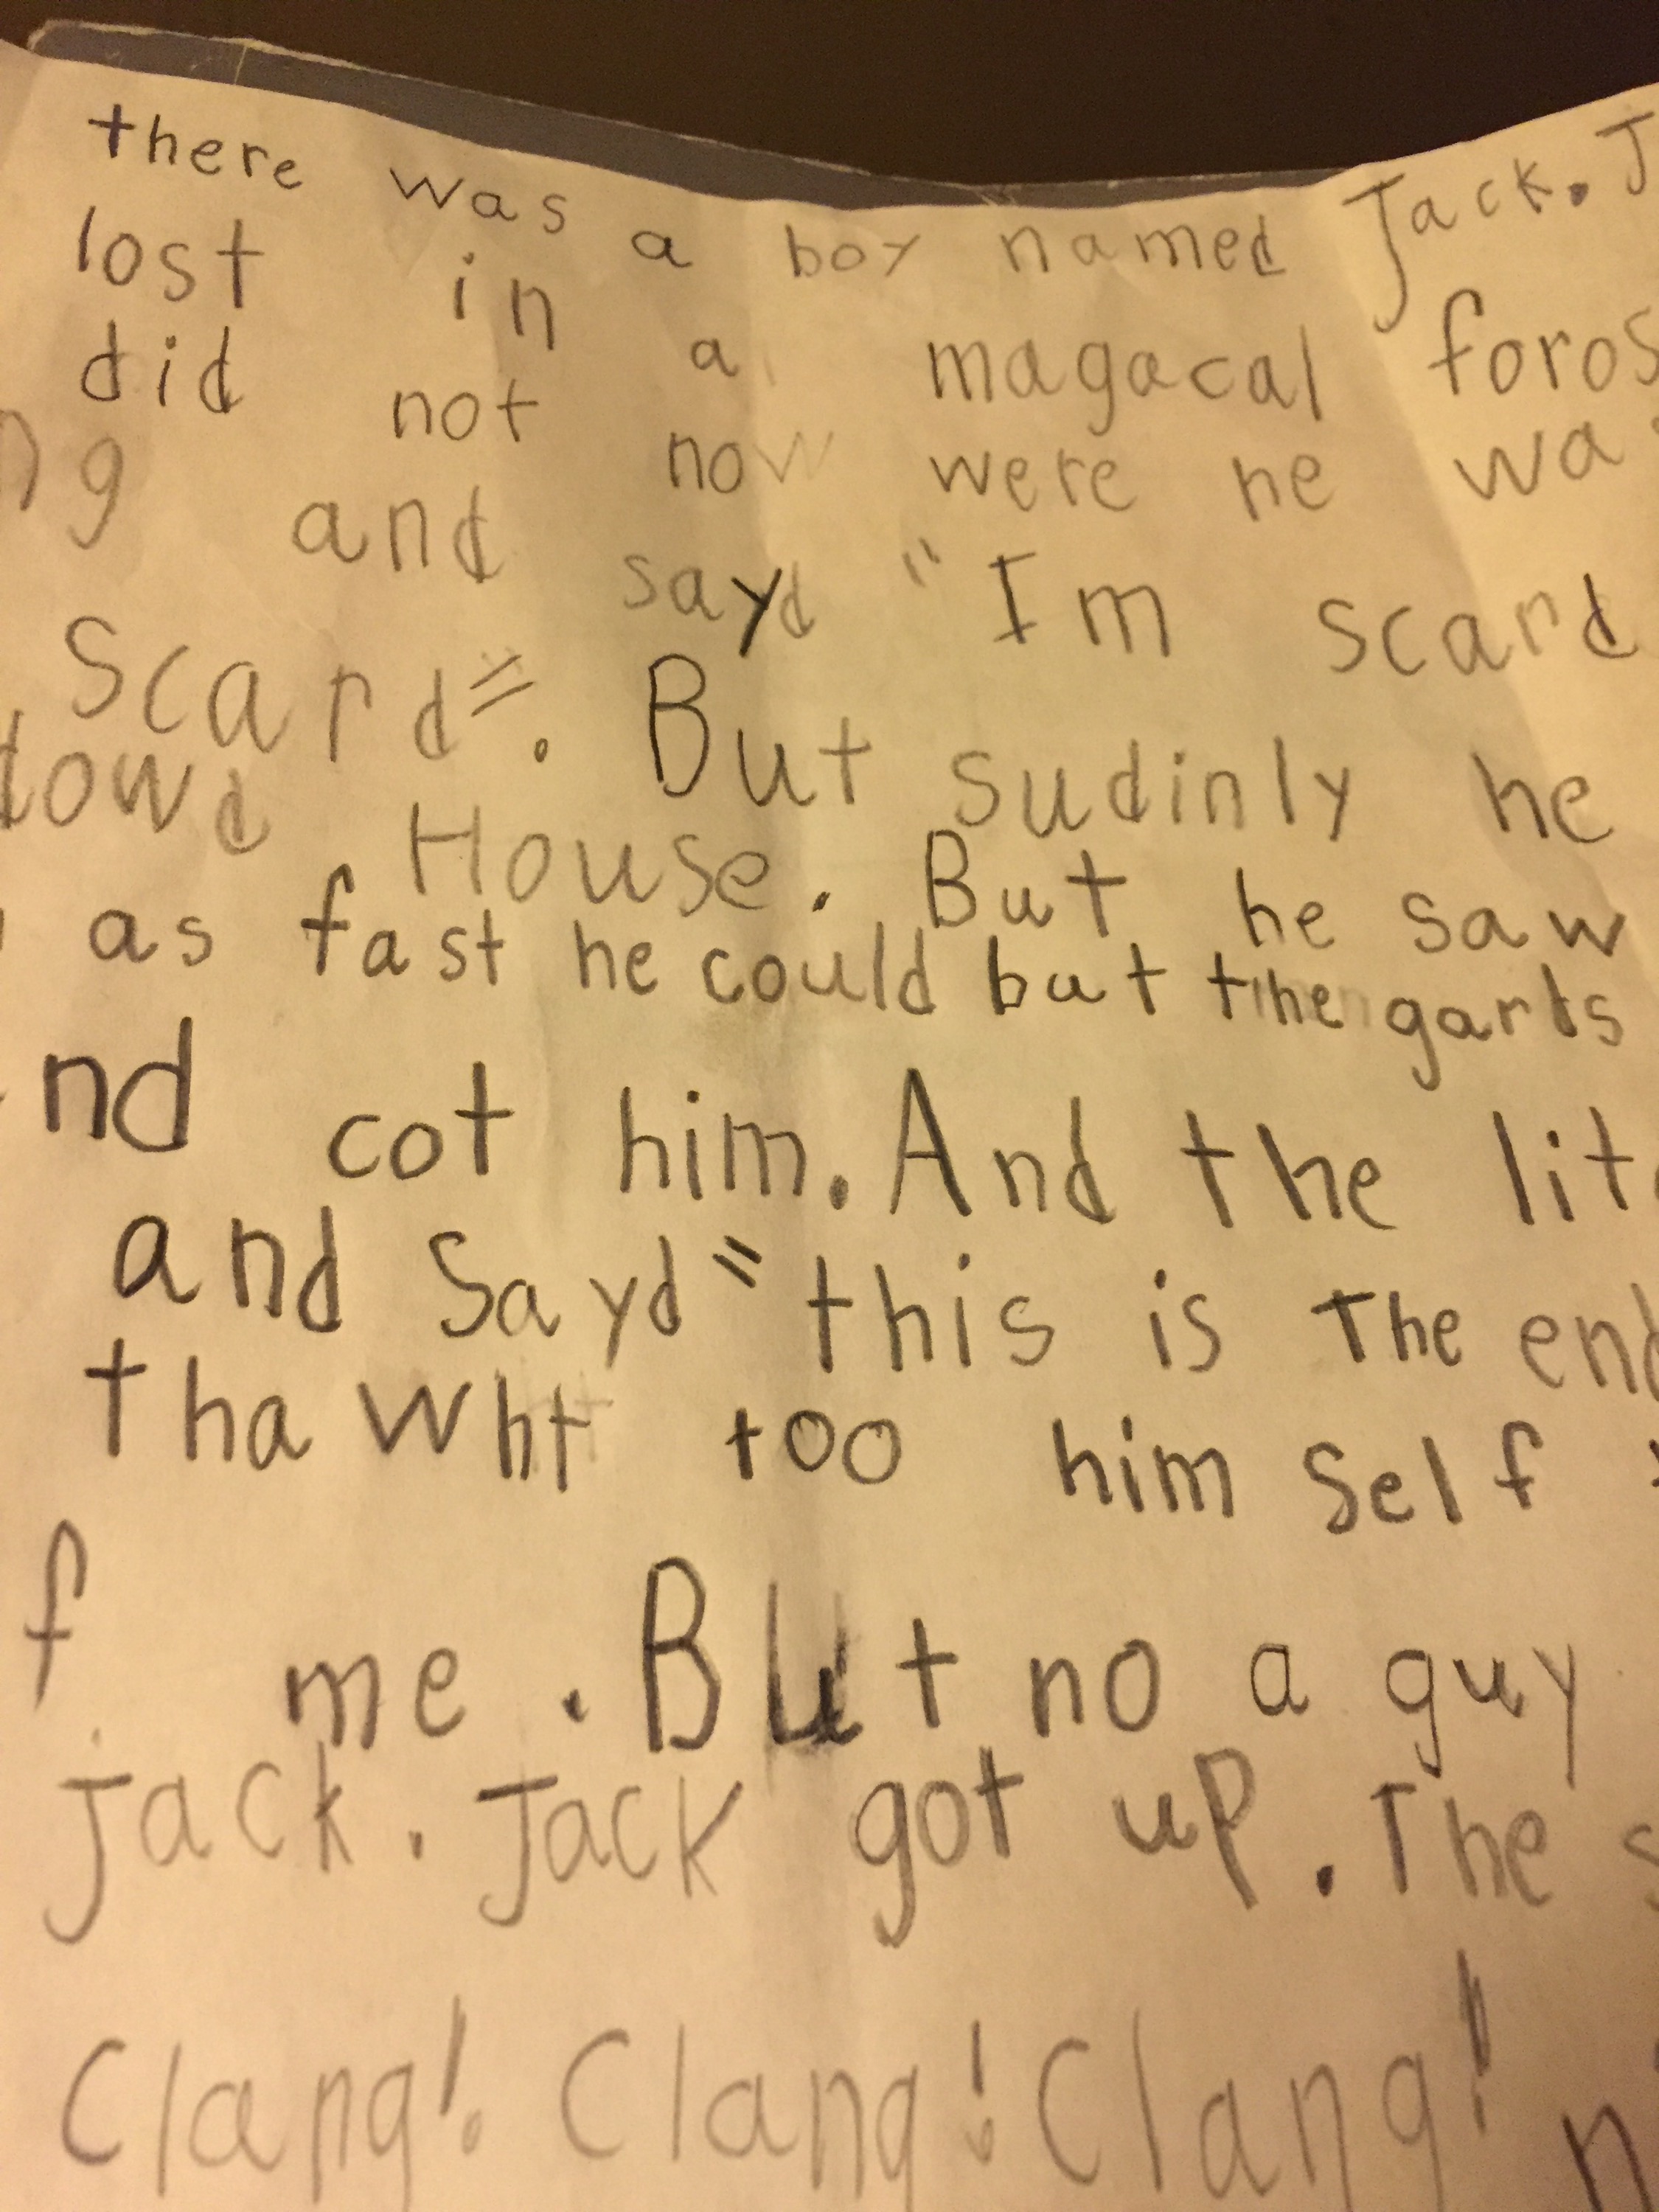 there was a boy named Jack. J
lost in a magacal foros
did not now were he wa
ng and sayd "Im scard
Scard". But sudinly he
dowd House. But he saw
as fast he could but the garts
nd cot him. And the lit
and sayd "this is The end
thawht too him self
f me. But no a guy
Jack. Jack got up. The s
Clang! Clang! Clang! n